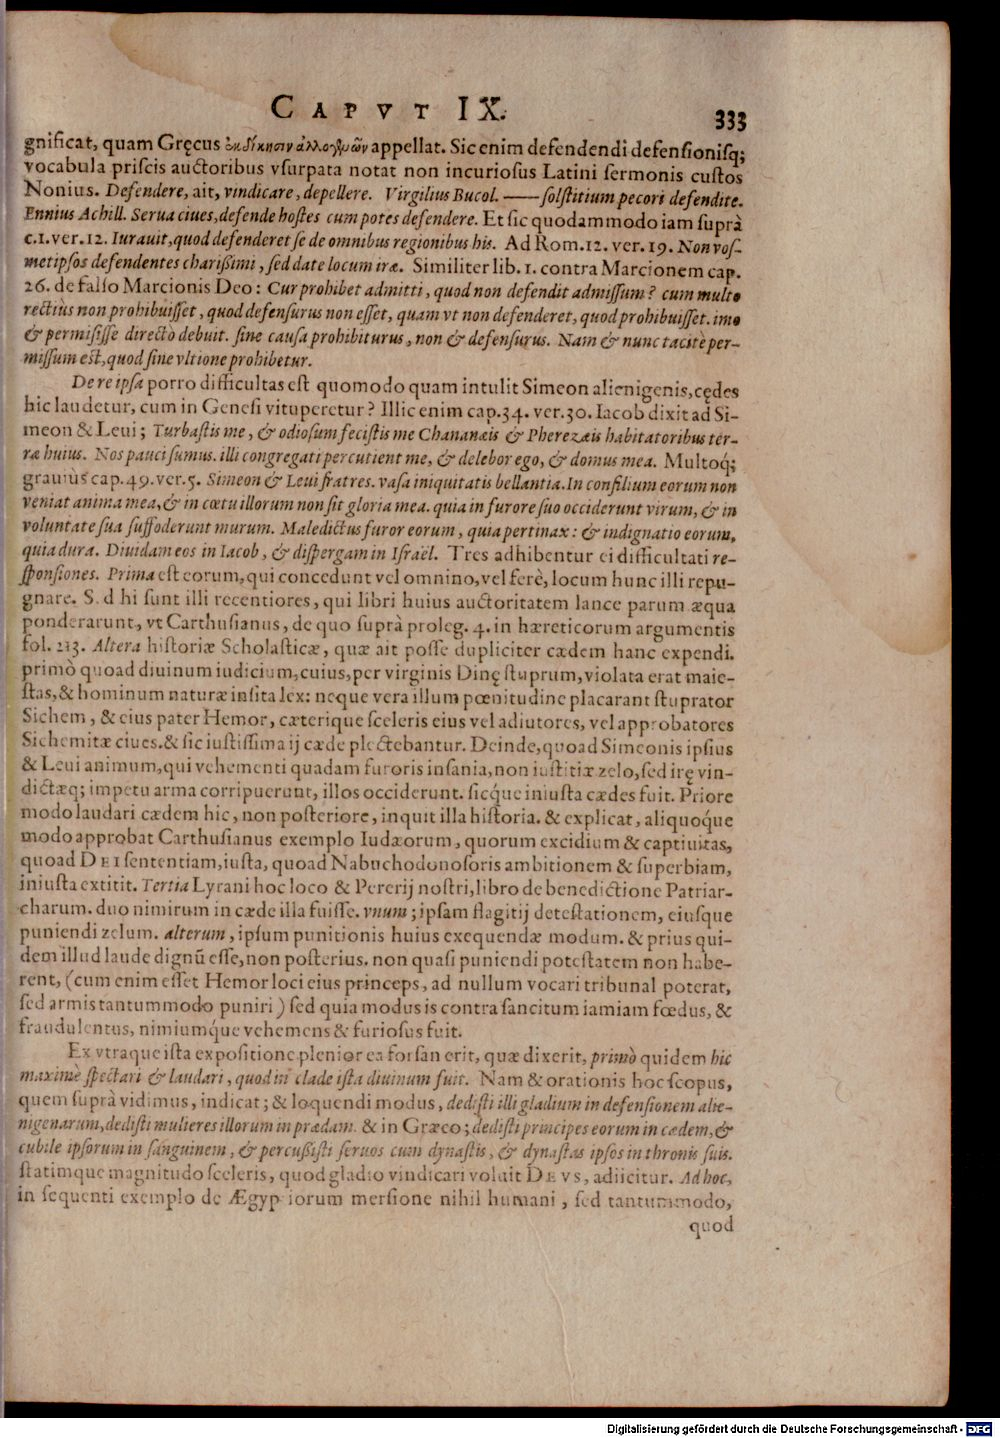 CAPVT IX.
333
gnificat, quam Gręcus ἐκδίκησιν ἀλλογενῶν appellat. Sic enim defendendi defensionisq́;
vocabula priscis auctoribus vsurpata notat non incuriosus Latini sermonis custos
Nonius. Defendere, ait, vindicare, depellere. Virgilius Bucol. —— solstitium pecori defendite.
Ennius Achill. Serua ciues, defende hostes cum potes defendere. Et sic quodammodo iam suprà
c.1. ver. 12. Iurauit, quod defenderet se de omnibus regionibus his. Ad Rom. 12. ver. 19. Non vos-
metipsos defendentes charißimi, sed date locum iræ. Similiter lib. 1. contra Marcionem cap.
26. de falso Marcionis Deo: Cur prohibet admitti, quod non defendit admissum? cum multo
rectiùs non prohibuisset, quod defensurus non esset, quam vt non defenderet, quod prohibuisset. imo
& permisisse directò debuit. sine causa prohibiturus, non & defensurus. Nam & nunc tacitè per-
missum est, quod sine vltione prohibetur.
De re ipsa porro difficultas est quomodo quam intulit Simeon alienigenis, cędes
hic laudetur, cum in Genesi vituperetur? Illic enim cap. 34. ver. 30. Iacob dixit ad Si-
meon & Leui; Turbastis me, & odiosum fecistis me Chananæis & Pherezæis habitatoribus ter-
ræ huius. Nos pauci sumus. illi congregati percutient me, & delebor ego, & domus mea. Multoq́;
grauiùs cap. 49. ver. 5. Simeon & Leui fratres. vasa iniquitatis bellantia. In consilium eorum non
veniat anima mea, & in cœtu illorum non sit gloria mea. quia in furore suo occiderunt virum, & in
voluntate sua suffoderunt murum. Maledictus furor eorum, quia pertinax: & indignatio eorum,
quia dura. Diuidam eos in Iacob, & dispergam in Israël. Tres adhibentur ei difficultati re-
sponsiones. Prima est eorum, qui concedunt vel omnino, vel ferè, locum hunc illi repu-
gnare. S. d hi sunt illi recentiores, qui libri huius auctoritatem lance parum æqua
ponderarunt, vt Carthusianus, de quo suprà proleg. 4. in hæreticorum argumentis
fol. 213. Altera historiæ Scholasticæ, quæ ait posse dupliciter cædem hanc expendi.
primò quoad diuinum iudicium, cuius, per virginis Dinę stuprum, violata erat maie-
stas, & hominum naturæ insita lex: neque vera illum pœnitudine placarant stuprator
Sichem, & eius pater Hemor, cæterique sceleris eius vel adiutores, vel approbatores
Sichemitæ ciues. & sic iustissima ij cæde plectebantur. Deinde, quoad Simeonis ipsius
& Leui animum, qui vehementi quadam furoris insania, non iustitiæ zelo, sed irę vin-
dictæq; impetu arma corripuerunt, illos occiderunt. sicq́ue iniusta cædes fuit. Priore
modo laudari cædem hic, non posteriore, inquit illa historia. & explicat, aliquoq́ue
modo approbat Carthusianus exemplo Iudæorum, quorum excidium & captiuitas,
quoad DEI sententiam, iusta, quoad Nabuchodonosoris ambitionem & superbiam,
iniusta extitit. Tertia Lyrani hoc loco & Pererij nostri, libro de benedictione Patriar-
charum. duo nimirum in cæde illa fuisse. vnum; ipsam flagitij detestationem, eiusque
puniendi zelum. alterum, ipsum punitionis huius exequendæ modum. & prius qui-
dem illud laude dignũ esse, non posterius. non quasi puniendi potestatem non habe-
rent, (cum enim esset Hemor loci eius princeps, ad nullum vocari tribunal poterat,
sed armis tantummodo puniri) sed quia modus is contra sancitum iamiam fœdus, &
fraudulentus, nimiumq́ue vehemens & furiosus fuit.
Ex vtraque ista expositione plenior ea forsan erit, quæ dixerit, primò quidem hic
maximè spectari & laudari, quod in clade ista diuinum fuit. Nam & orationis hoc scopus,
quem suprà vidimus, indicat; & loquendi modus, dedisti illi gladium in defensionem alie-
nigenarum, dedisti mulieres illorum in prædam. & in Græco; dedisti principes eorum in cædem, &
cubile ipsorum in sanguinem, & percußisti seruos cum dynastis, & dynastas ipsos in thronis suis.
statimque magnitudo sceleris, quod gladio vindicari voluit DEVS, adiicitur. Ad hoc,
in sequenti exemplo de Ægyp iorum mersione nihil humani, sed tantummodo,
quod
Digitalisierung gefördert durch die Deutsche Forschungsgemeinschaft - DFG